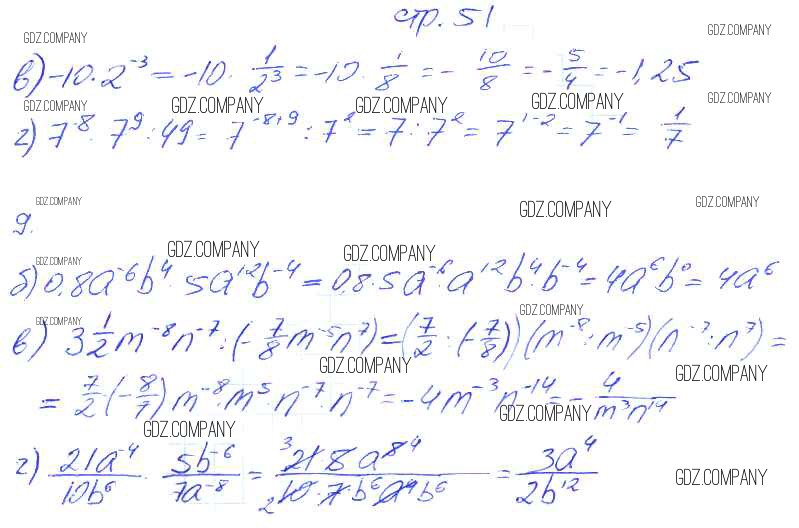 стр. 51
GDZ.COMPANY GDZ.COMPANY
в) -10·2^-3 = -10· 1/2^3 = -10· 1/8 = - 10/8 = - 5/4 = -1,25
GDZ.COMPANY GDZ.COMPANY GDZ.COMPANY GDZ.COMPANY GDZ.COMPANY
г) 7^-8 · 7^9 : 49 = 7^-8+9 : 7^2 = 7 : 7^2 = 7^1-2 = 7^-1 = 1/7
GDZ.COMPANY GDZ.COMPANY GDZ.COMPANY
9.
GDZ.COMPANY GDZ.COMPANY GDZ.COMPANY
б) 0,8a^-6 b^4 · 5a^12 b^-4 = 0,8·5a^-6 · a^12 b^4 b^-4 = 4a^6 b^0 = 4a^6
GDZ.COMPANY GDZ.COMPANY
в) 3 1/2 m^-8 n^-7 : (- 7/8 m^-5 n^7) = (7/2 : (- 7/8)) (m^-8 : m^-5)(n^-7 : n^7) =
GDZ.COMPANY GDZ.COMPANY
= 7/2 (- 8/7) m^-8 · m^5 · n^-7 · n^-7 = -4m^-3 n^-14 = - 4/m^3 n^14
GDZ.COMPANY GDZ.COMPANY
г) 21a^-4/10b^6 · 5b^-6/7a^-8 = 3 21·5 a^8 4/2 10·7 b^6 a^4 b^6 = 3a^4/2b^12
GDZ.COMPANY